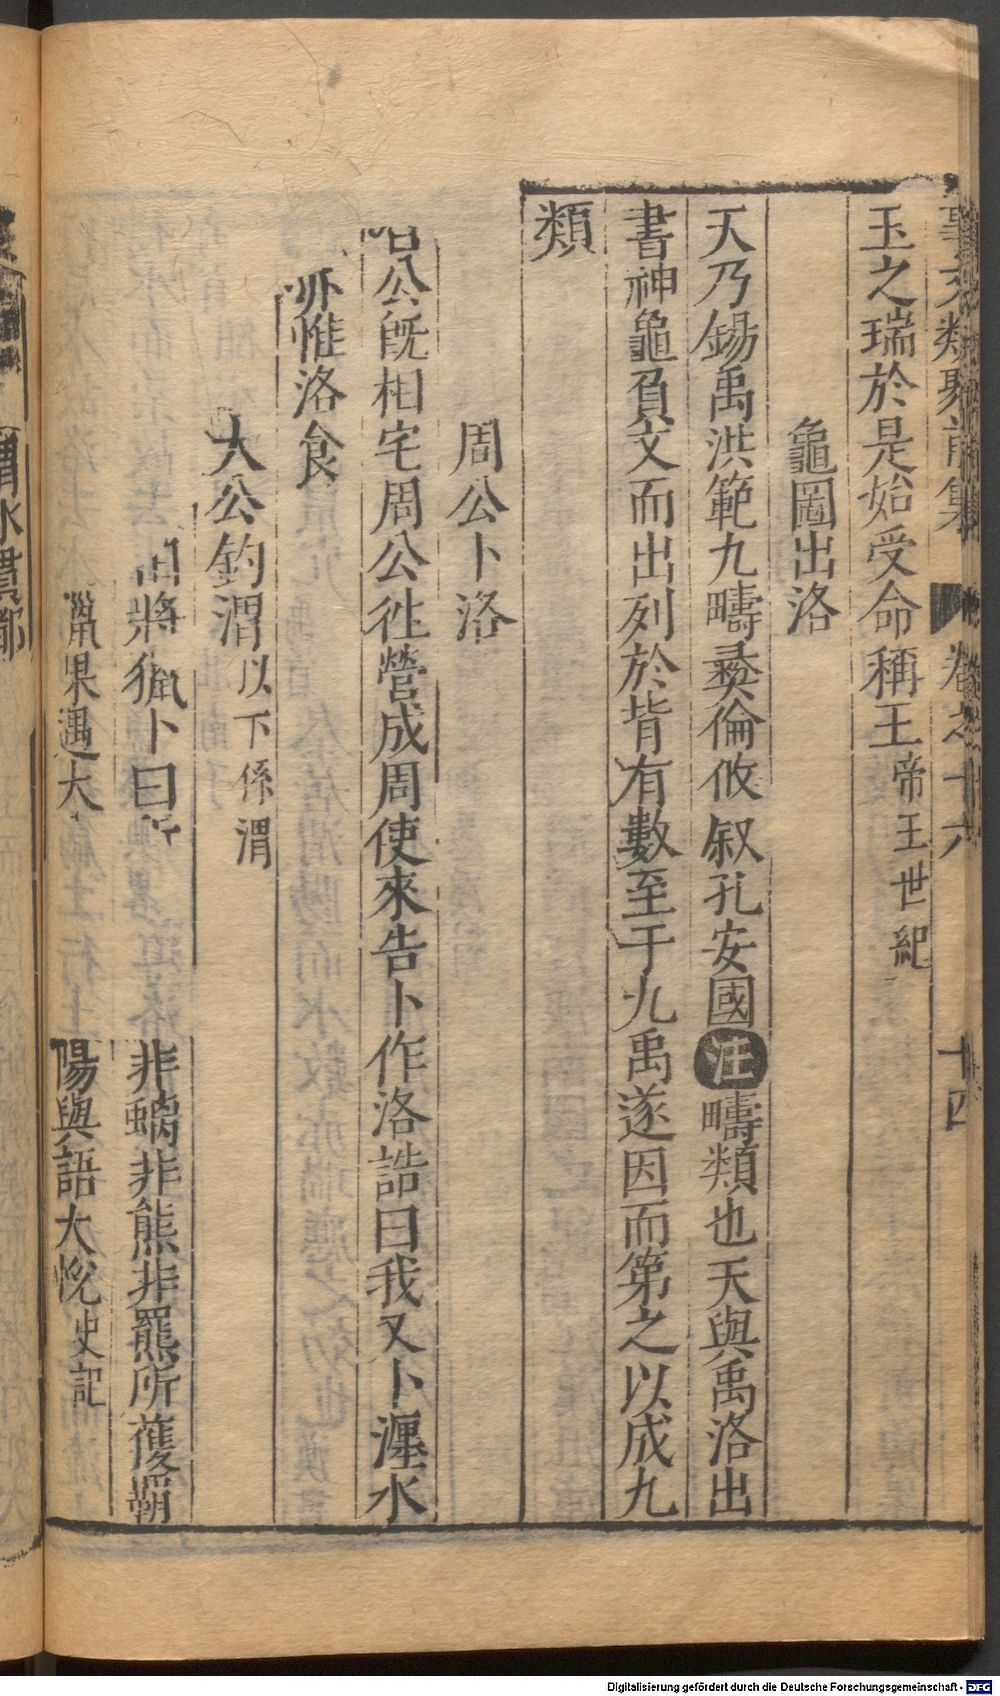 事文類聚前集 卷之十六 十四
玉之瑞於是始受命稱王帝王世紀
龜圖出洛
天乃錫禹洪範九疇彛倫攸叙孔安國注疇類也天與禹洛出
書神龜負文而出列於背有數至于九禹遂因而第之以成九
類
周公卜洛
召公旣相宅周公徃營成周使來告卜作洛誥曰我又卜瀍水
亦惟洛食
大公釣渭以下係渭
將獵卜曰所 非螭非熊非羆所獲霸
果遇大 陽與語大悅史記
渭水貫都
Digitalisierung gefördert durch die Deutsche Forschungsgemeinschaft - DFG